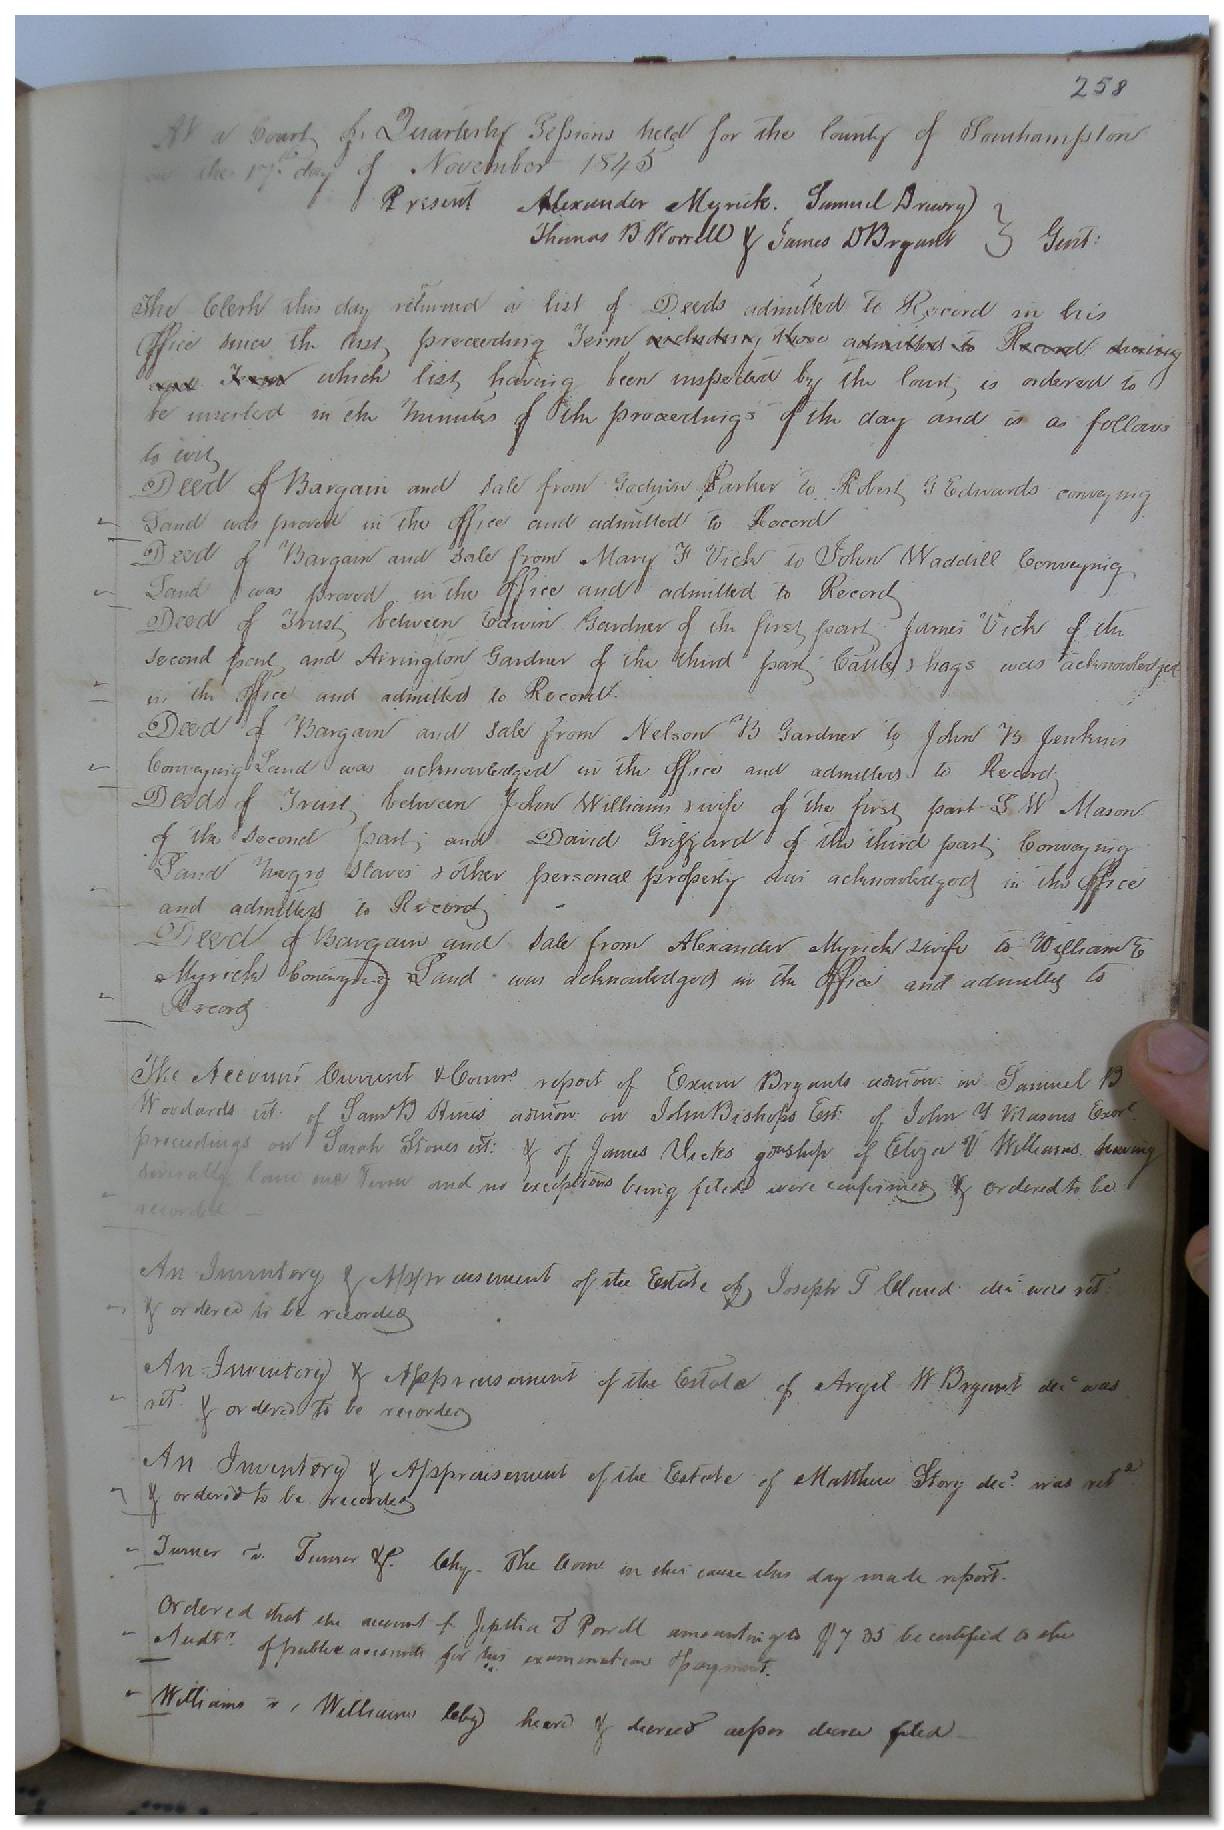 258
At a Court of Quarterly Sessions held for the County of Southampton
on the 17th day of November 1845
Present Alexander Myrick. Samuel Drewry
Thomas B Worrell & James D Bryant } Gent:
The Clerk this day returned a list of Deeds admitted to Record in his
Office since the last preceeding Term including those admitted to Record during
Term which list having been inspected by the Court, is ordered to
be inserted in the Minutes of the proceedings of the day and is as follows
to wit,
Deed of Bargain and sale from Godwin Parker to Robert G Edwards conveying
Land was proved in the Office and admitted to Record
Deed of Bargain and sale from Mary F Vick to John Waddill Conveying
Land was proved in the Office and admitted to Record
Deed of Trust between Edwin Gardner of the first part, James Vick of the
second part and Arrington Gardner of the third part Cattle & hogs was acknowledged
in the Office and admitted to Record.
Deed of Bargain and sale from Nelson B Gardner to John B Jenkins
Conveying Land was acknowledged in the Office and admitted to Record
Deeds of Trust between John Williams & wife of the first part L W Mason
of the second part, and David Grizzard of the third part, Conveying
Land Negro Slaves & other personal property was acknowledged in the Office
and admitted to Record
Deed of Bargain and sale from Alexander Myrick & wife to William E
Myrick Conveying Land was acknowledged in the Office and admitted to
Record
The Account Current & Comrs report of Exum Bryants admon: on Samuel B
Woodards est: of Saml B Hines admon on John Bishops Est: of John Y Masons Exorl
proceedings on Sarah Stones est: & of James Vicks gdnship of Eliza V Williams having
severally laid one Term and no exceptions being filed were confirmed & ordered to be
recorded
An Inventory & Appraisement of the Estate of Joseph T Claud decd was retd
& ordered to be recorded
An Inventory & Appraisement of the Estate of Argil W Bryant decd was
retd & ordered to be recorded
An Inventory & Appraisement of the Estate of Matthew Story decd. was retd
& ordered to be recorded
Turner vs. Turner &c. Chy. The Comr in this cause this day made report.
Ordered that the account of Jeptha T Powell amounting to $7 35 be certified to the
Audtr. of public accounts for his examination & payment.
Williams vs. Williams Chy heard & decreed as per decree filed